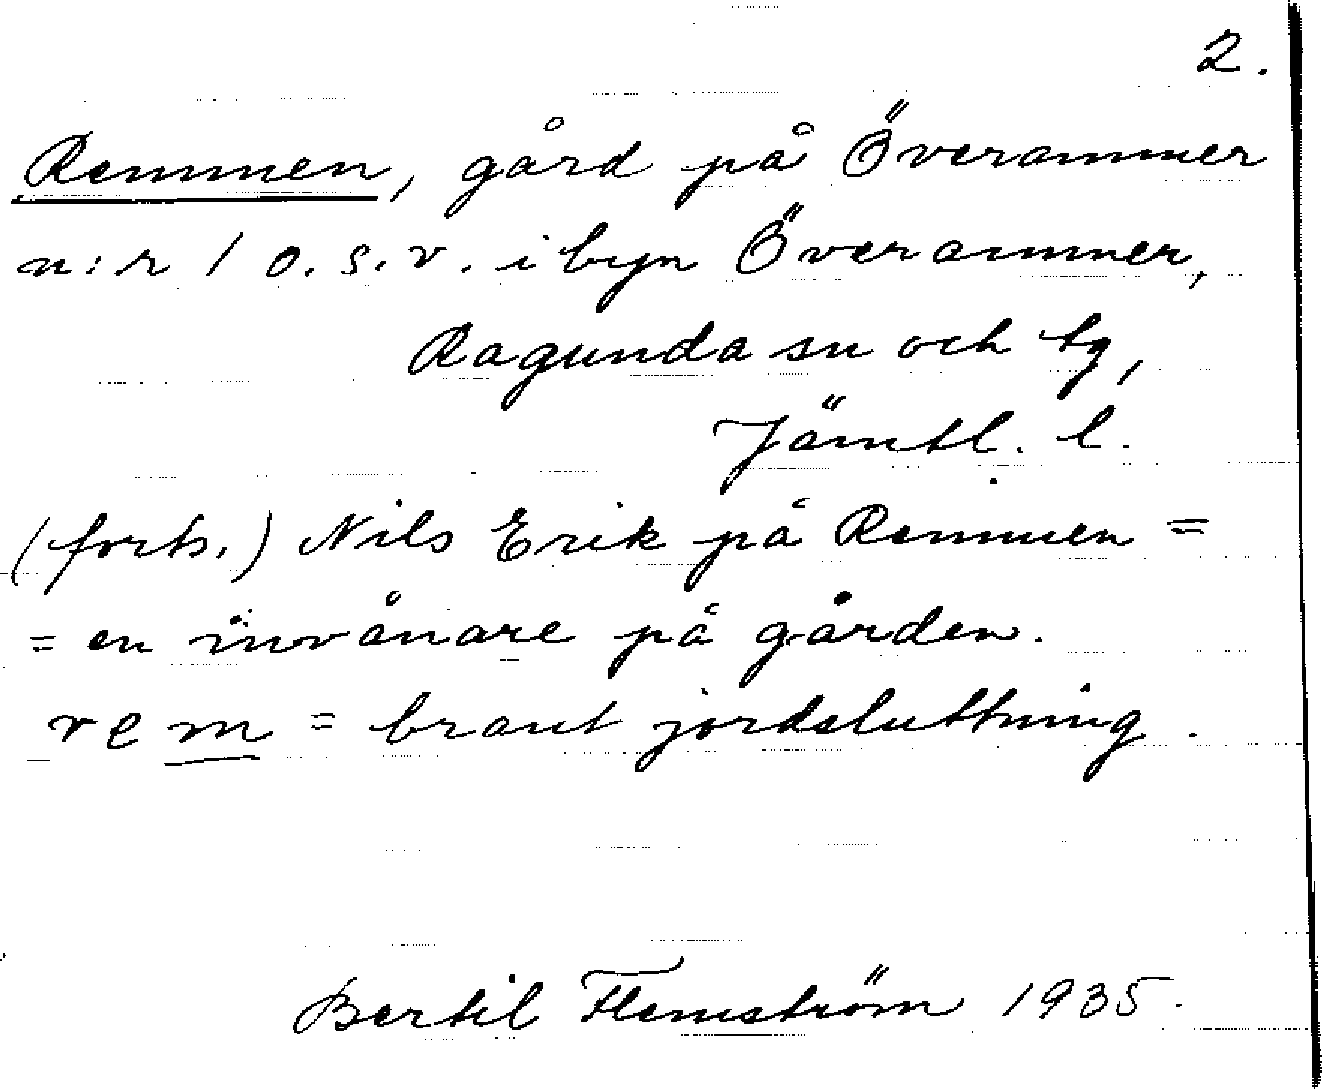 2.
Remmen, gård på Överammer
n:r 1 o.s.v. i byn Överammer,
Ragunda sn och tg,
Jämtl. l.
(forts.) Nils Erik på Remmen =
= en invånare på gården.
rem = brant jordsluttning.
Bertil Flemström 1935.